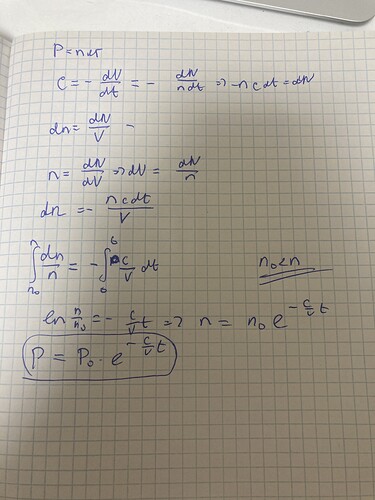 P = nkT
C = - dV/dt = - dN/n dt => -n c dt = dN
dn = dN/V -
n = dN/dV => dV = dN/n
dn = - n c dt/V
∫ₙ₀ⁿ dn/n = - ∫₀ᵗ c/V dt
n₀ < n
ln n/n₀ = - c/V t => n = n₀ e^(-c/V t)
P = P₀ · e^(-c/V t)